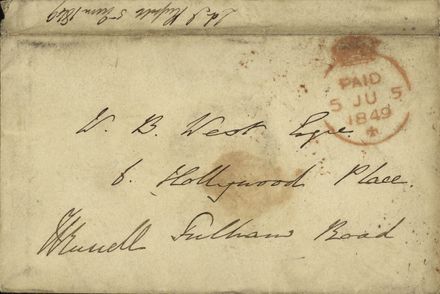 5th June 1849
PAID
5 JU 5
1849
W. B. West Esqre.
6. Hollywood Place.
Fulham Road
JRussell